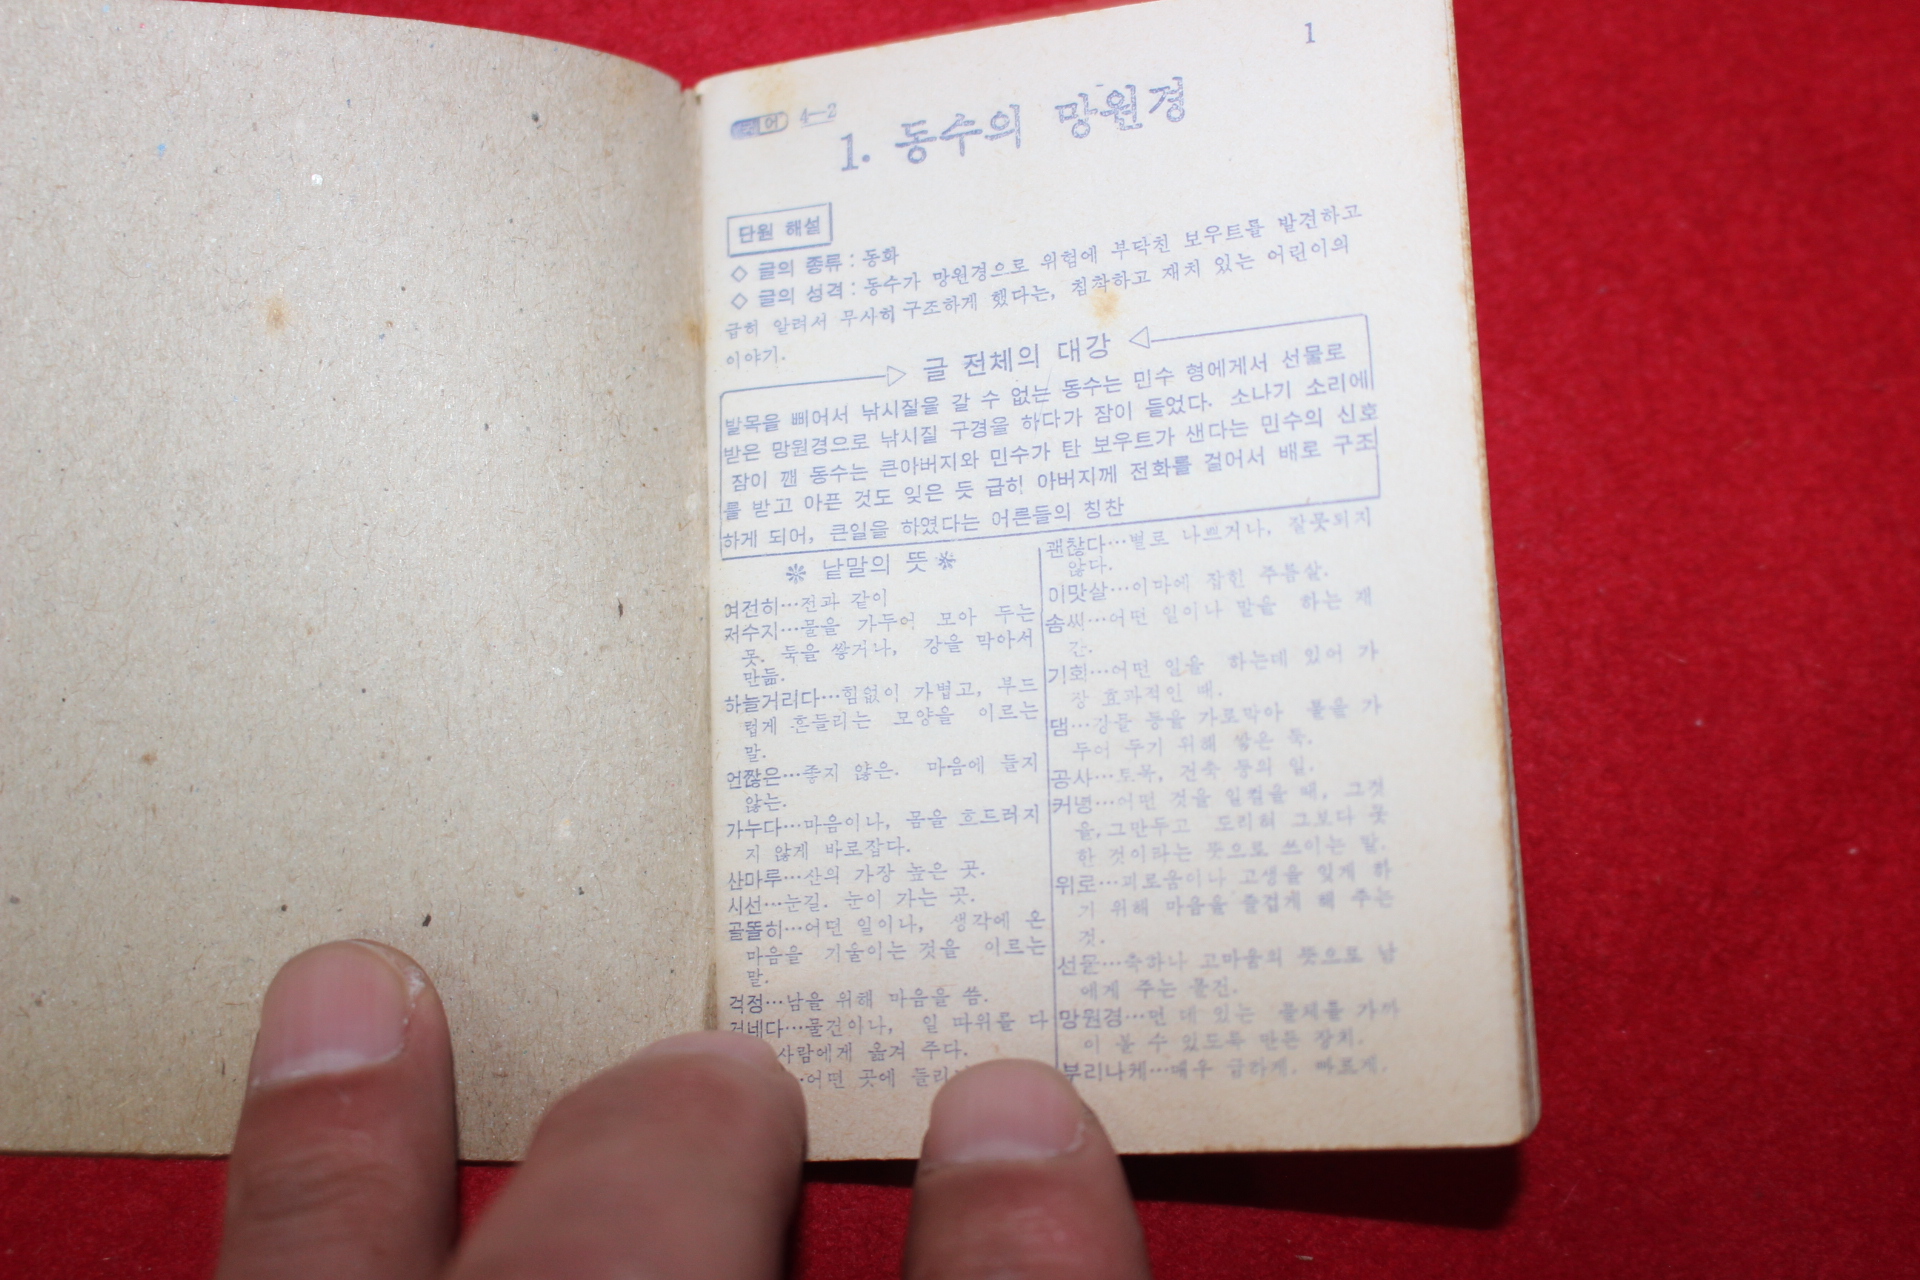 1
국어 4-2
1. 동수의 망원경
단원 해설
◇ 글의 종류 : 동화
◇ 글의 성격 : 동수가 망원경으로 위험에 부닥친 보우트를 발견하고
급히 알려서 무사히 구조하게 했다는, 침착하고 재치 있는 어린이의
이야기.
글 전체의 대강
발목을 삐어서 낚시질을 갈 수 없는 동수는 민수 형에게서 선물로
받은 망원경으로 낚시질 구경을 하다가 잠이 들었다. 소나기 소리에
잠이 깬 동수는 큰아버지와 민수가 탄 보우트가 샌다는 민수의 신호
를 받고 아픈 것도 잊은 듯 급히 아버지께 전화를 걸어서 배로 구조
하게 되어, 큰일을 하였다는 어른들의 칭찬
※ 낱말의 뜻 ※
여전히…전과 같이
저수지…물을 가두어 모아 두는
못. 둑을 쌓거나, 강을 막아서
만듦.
하늘거리다…힘없이 가볍고, 부드
럽게 흔들리는 모양을 이르는
말.
언짢은…좋지 않은. 마음에 들지
않는.
가누다…마음이나, 몸을 흐트러지
지 않게 바로잡다.
산마루…산의 가장 높은 곳.
시선…눈길. 눈이 가는 곳.
골똘히…어떤 일이나, 생각에 온
마음을 기울이는 것을 이르는
말.
걱정…남을 위해 마음을 씀.
건네다…물건이나, 일 따위를 다
사람에게 옮겨 주다.
…어떤 곳에 들러
괜찮다…별로 나쁘거나, 잘못되지
않다.
이맛살…이마에 잡힌 주름살.
솜씨…어떤 일이나 말을 하는 재
간.
기회…어떤 일을 하는데 있어 가
장 효과적인 때.
댐…강물 등을 가로막아 물을 가
두어 두기 위해 쌓은 둑.
공사…토목, 건축 등의 일.
커녕…어떤 것을 일컬을 때, 그것
을, 그만두고 도리혀 그보다 못
한 것이라는 뜻으로 쓰이는 말.
위로…괴로움이나 고생을 잊게 하
기 위해 마음을 즐겁게 해 주는
것.
선물…축하나 고마움의 뜻으로 남
에게 주는 물건.
망원경…먼 데 있는 물체를 가까
이 볼 수 있도록 만든 장치.
부리나케…매우 급하게. 빠르게.